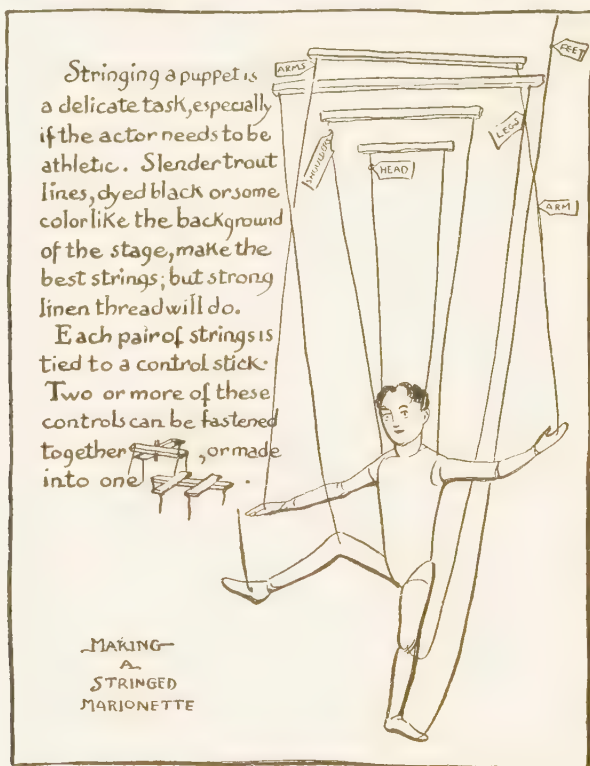 Stringing a puppet is
a delicate task, especially
if the actor needs to be
athletic. Slender trout
lines, dyed black or some
color like the background
of the stage, make the
best strings; but strong
linen thread will do.
Each pair of strings is
tied to a control stick.
Two or more of these
controls can be fastened
together , or made
into one .
ARMS
FEET
LEGS
SHOULDERS
HEAD
ARM
MAKING
A
STRINGED
MARIONETTE